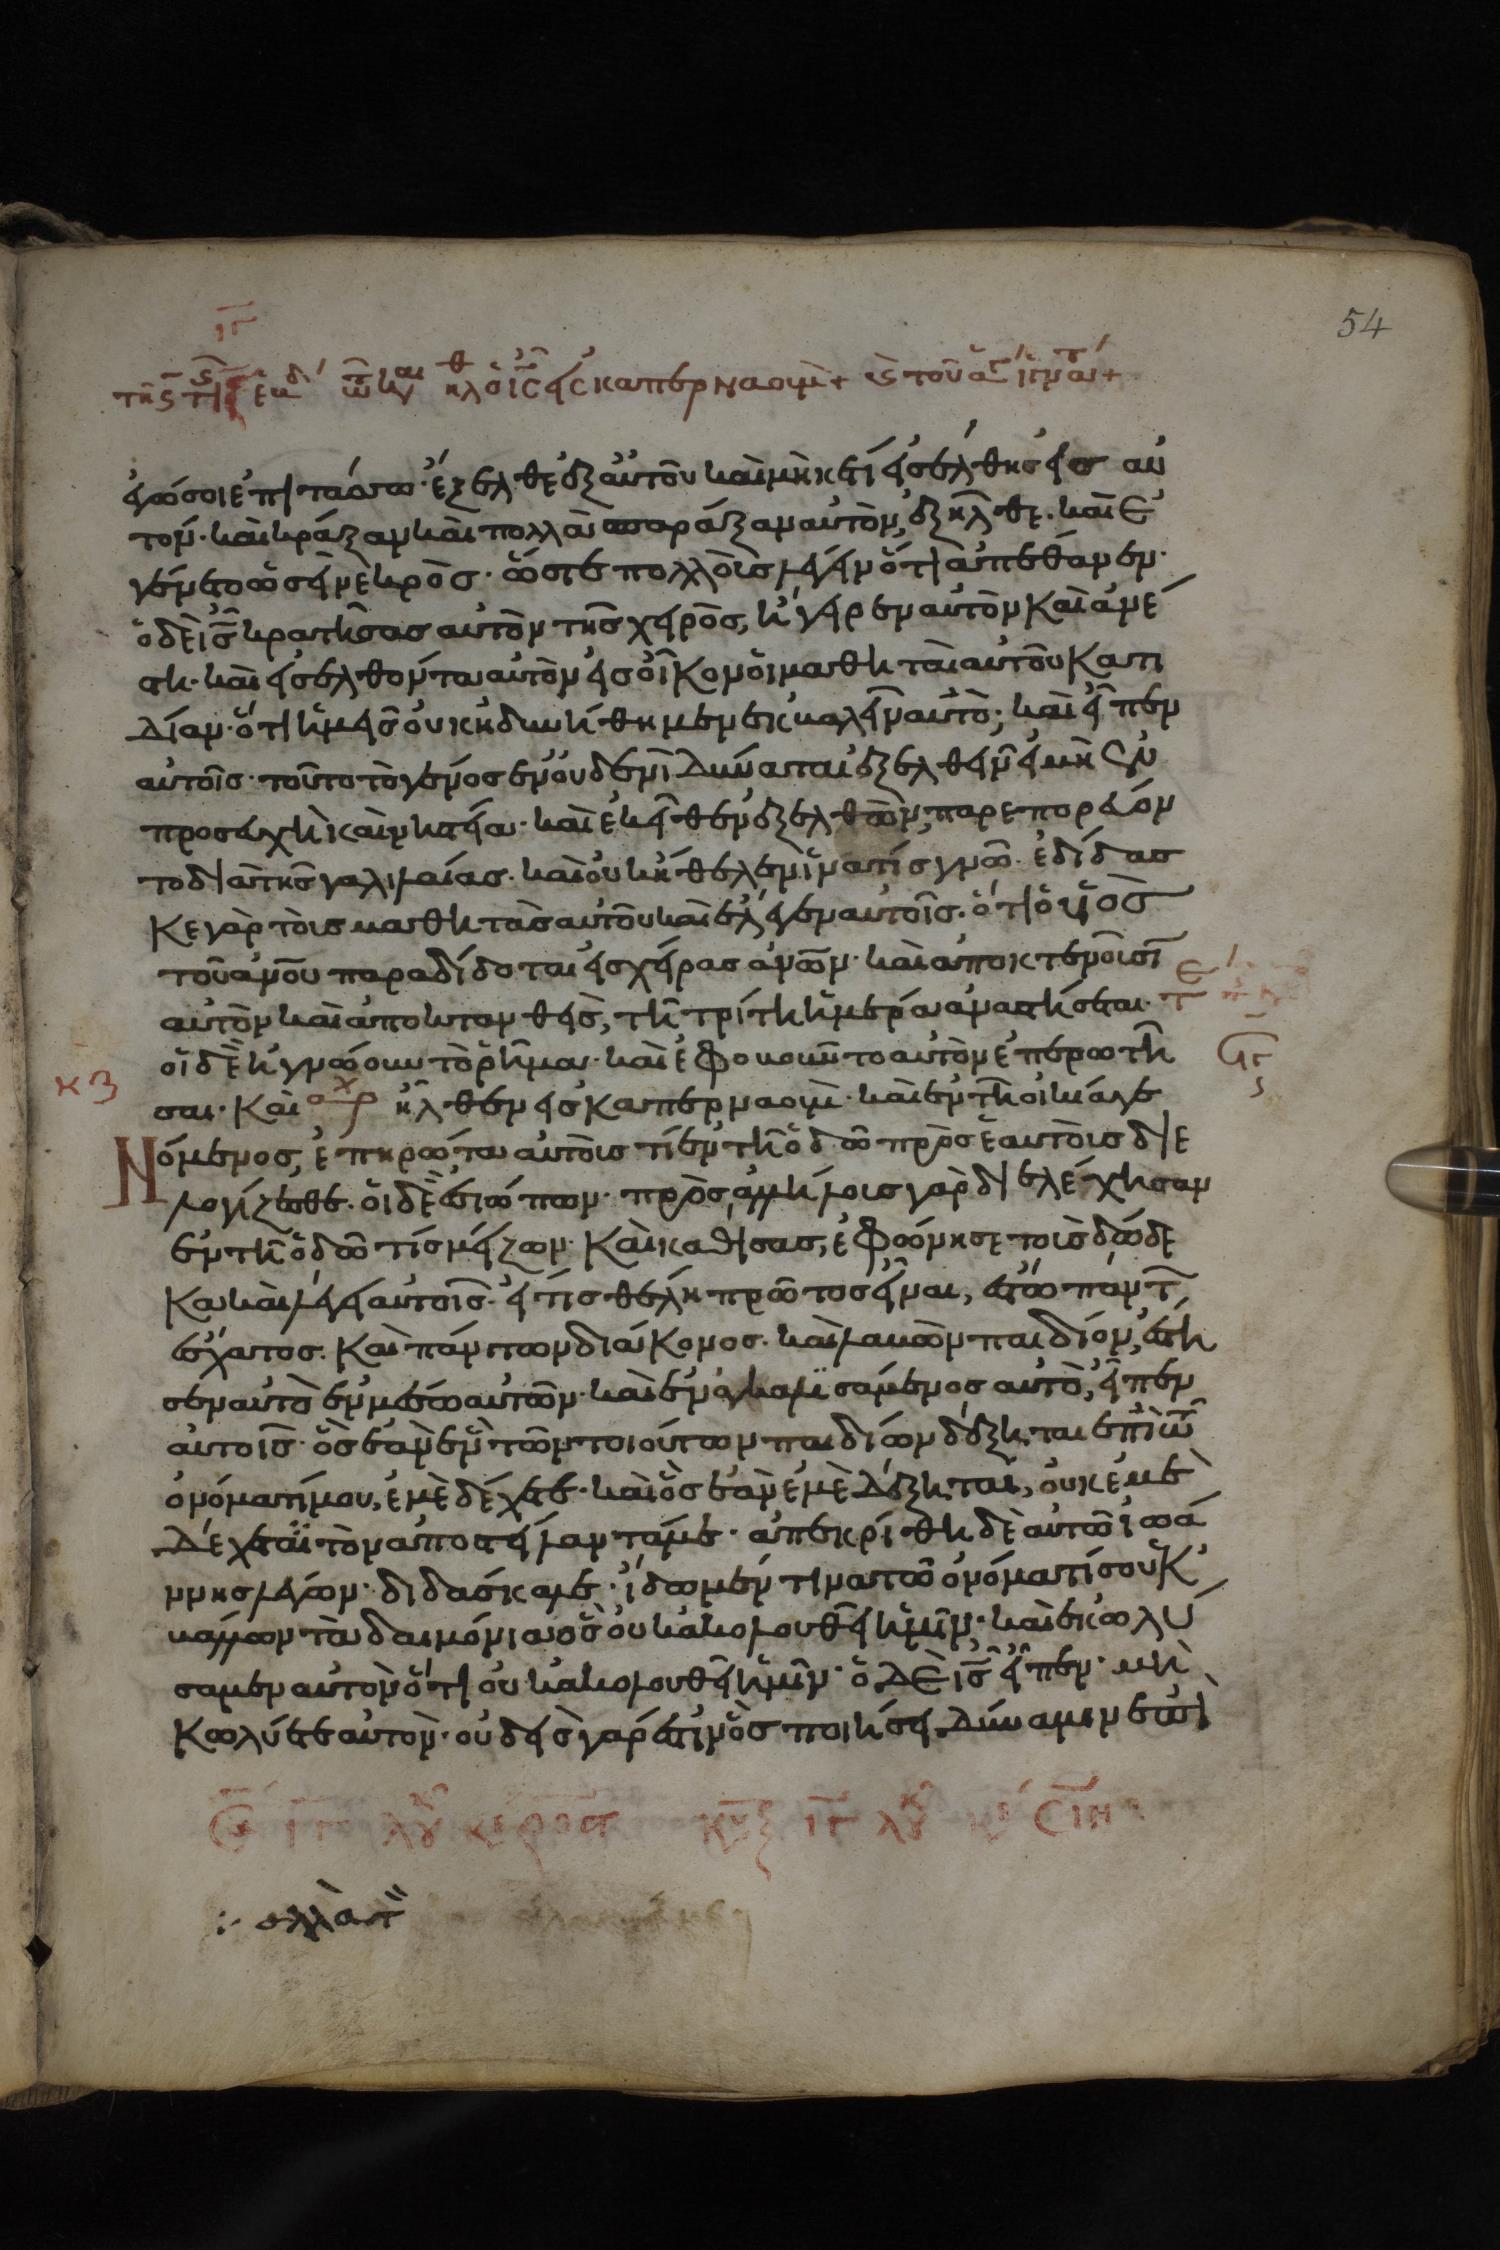 54
ἐγώ σοι ἐπιτάσσω ἔξελθε ἐξ αὐτοῦ καὶ μηκέτι εἰσέλθης εἰς αὐ
τόν· καὶ κράξαν καὶ πολλὰ σπαράξαν αὐτὸν, ἐξῆλθε· καὶ ἐ
γένετο ὡσεὶ νεκρὸς· ὥστε πολλοὺς λέγειν ὅτι ἀπέθανεν·
ὁ δὲ ις κρατήσας αὐτὸν τῆς χειρὸς, ἤγειρεν αὐτὸν καὶ ἀνέ
στη· καὶ εἰσελθόντα αὐτὸν εἰς οἶκον οἱ μαθηταὶ αὐτοῦ κατι
δίαν· ὅτι ἡμεῖς οὐκ ἠδυνήθημεν ἐκβαλεῖν αὐτὸ; καὶ εἶπεν
αὐτοῖς· τοῦτο τὸ γένος ἐν οὐδενὶ δύναται ἐξελθεῖν εἰ μὴ ἐν
προσευχῆ καὶ νηστεία· καὶ ἐκεῖθεν ἐξελθὼν, παρεπορεύον
το διὰ τῆς γαλιλαίας· καὶ οὐκ ἤθελεν ἵνα τίς γνῶ· ἐδίδασ
κε γὰρ τοὺς μαθητὰς αὐτοῦ καὶ ἔλεγεν αὐτοῖς· ὅτι ὁ υἱὸς
τοῦ ανου παραδίδοται εἰς χεῖρας ανων· καὶ ἀποκτενοῦσι
αὐτὸν καὶ ἀποκτανθεὶς, τῆ τρίτη ἡμέρα ἀναστήσεται·
οἱ δὲ ἠγνόουν τὸ ῥῆμα· καὶ ἐφοβοῦντο αὐτὸν ἐπερωτῆ
κζ
σαι· Καὶ ἦλθεν εἰς καπερναουμ· καὶ ἐν τῆ οἰκία γε
Νόμενος, ἐπηρώτα αὐτοὺς τί ἐν τῆ ὁδῶ πρὸς ἑαυτοὺς διε
λογίζεσθε· οἱ δὲ ἐσιώπων· πρὸς ἀλλήλους γὰρ διελέχθησαν
ἐν τῆ ὁδῶ τίς μείζων· Καὶ καθίσας, ἐφώνησε τοὺς δώδε
κα καὶ λέγει αὐτοῖς· εἴ τις θέλει πρῶτος εἶναι, ἔστω πάντ
ἔσχατος· Καὶ πάντων διάκονος· καὶ λαβὼν παιδίον, ἔστη
σεν αὐτὸ ἐν μέσω αὐτῶν· καὶ ἐναγκαλισάμενος αὐτὸ, εἶπεν
αὐτοῖς· ὃς ἐὰν ἓν τῶν τοιούτων παιδίων δέξηται ἐπὶ τῶ
ὀνόματί μου, ἐμὲ δέχεται· καὶ ὃς ἐὰν ἐμὲ δέξηται, οὐκ ἐμὲ
δέχεται τὸν ἀποστείλαντά με· ἀπεκρίθη δὲ αὐτῶ ἰωά
ννης λέγων· διδάσκαλε· εἴδομέν τινα τῶ ὀνόματί σου ἐκ
βάλλων τὰ δαιμόνια ὃς οὐκ ἀκολουθεῖ ἡμῖν· καὶ ἐκωλύ
σαμεν αὐτὸν ὅτι οὐκ ἀκολουθεῖ ἡμῖν· ὁ δὲ ις εἶπεν· μὴ
κωλύετε αὐτὸν· οὐδεὶς γάρ ἐστιν ὃς ποιήσει δύναμιν ἐπὶ